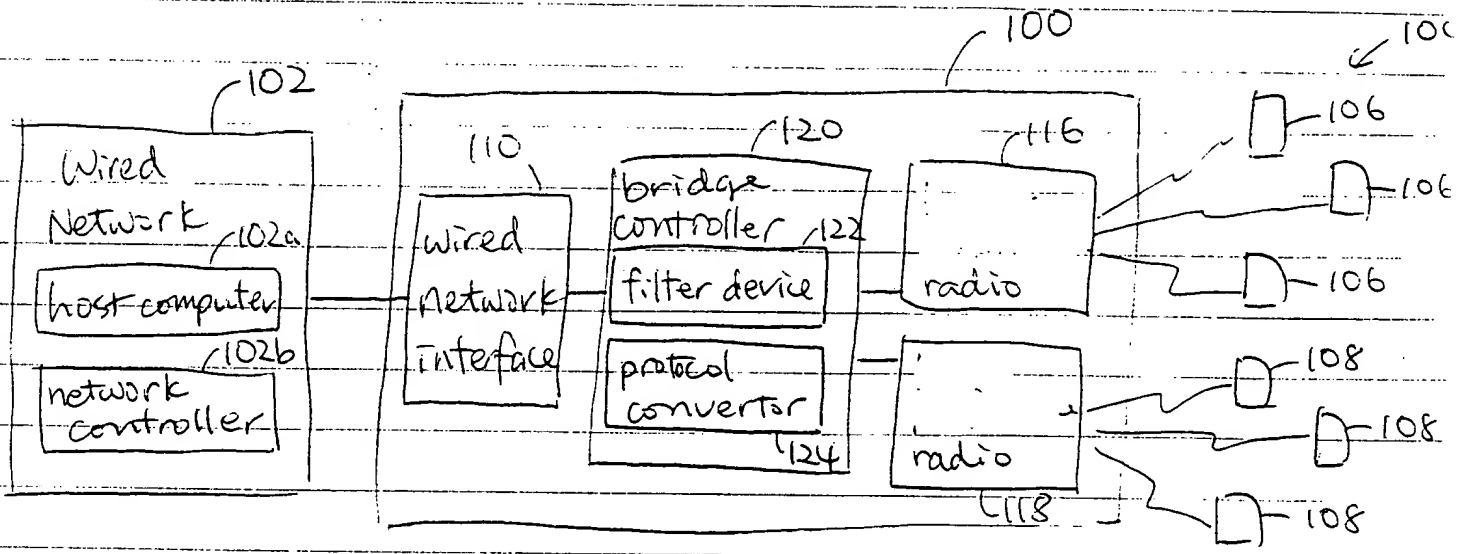 100
102
Wired
Network
102a
host computer
102b
network
controller
110
wired
network
interface
120
bridge
controller
122
filter device
protocol
convertor
124
116
radio
radio
118
106
106
106
108
108
108